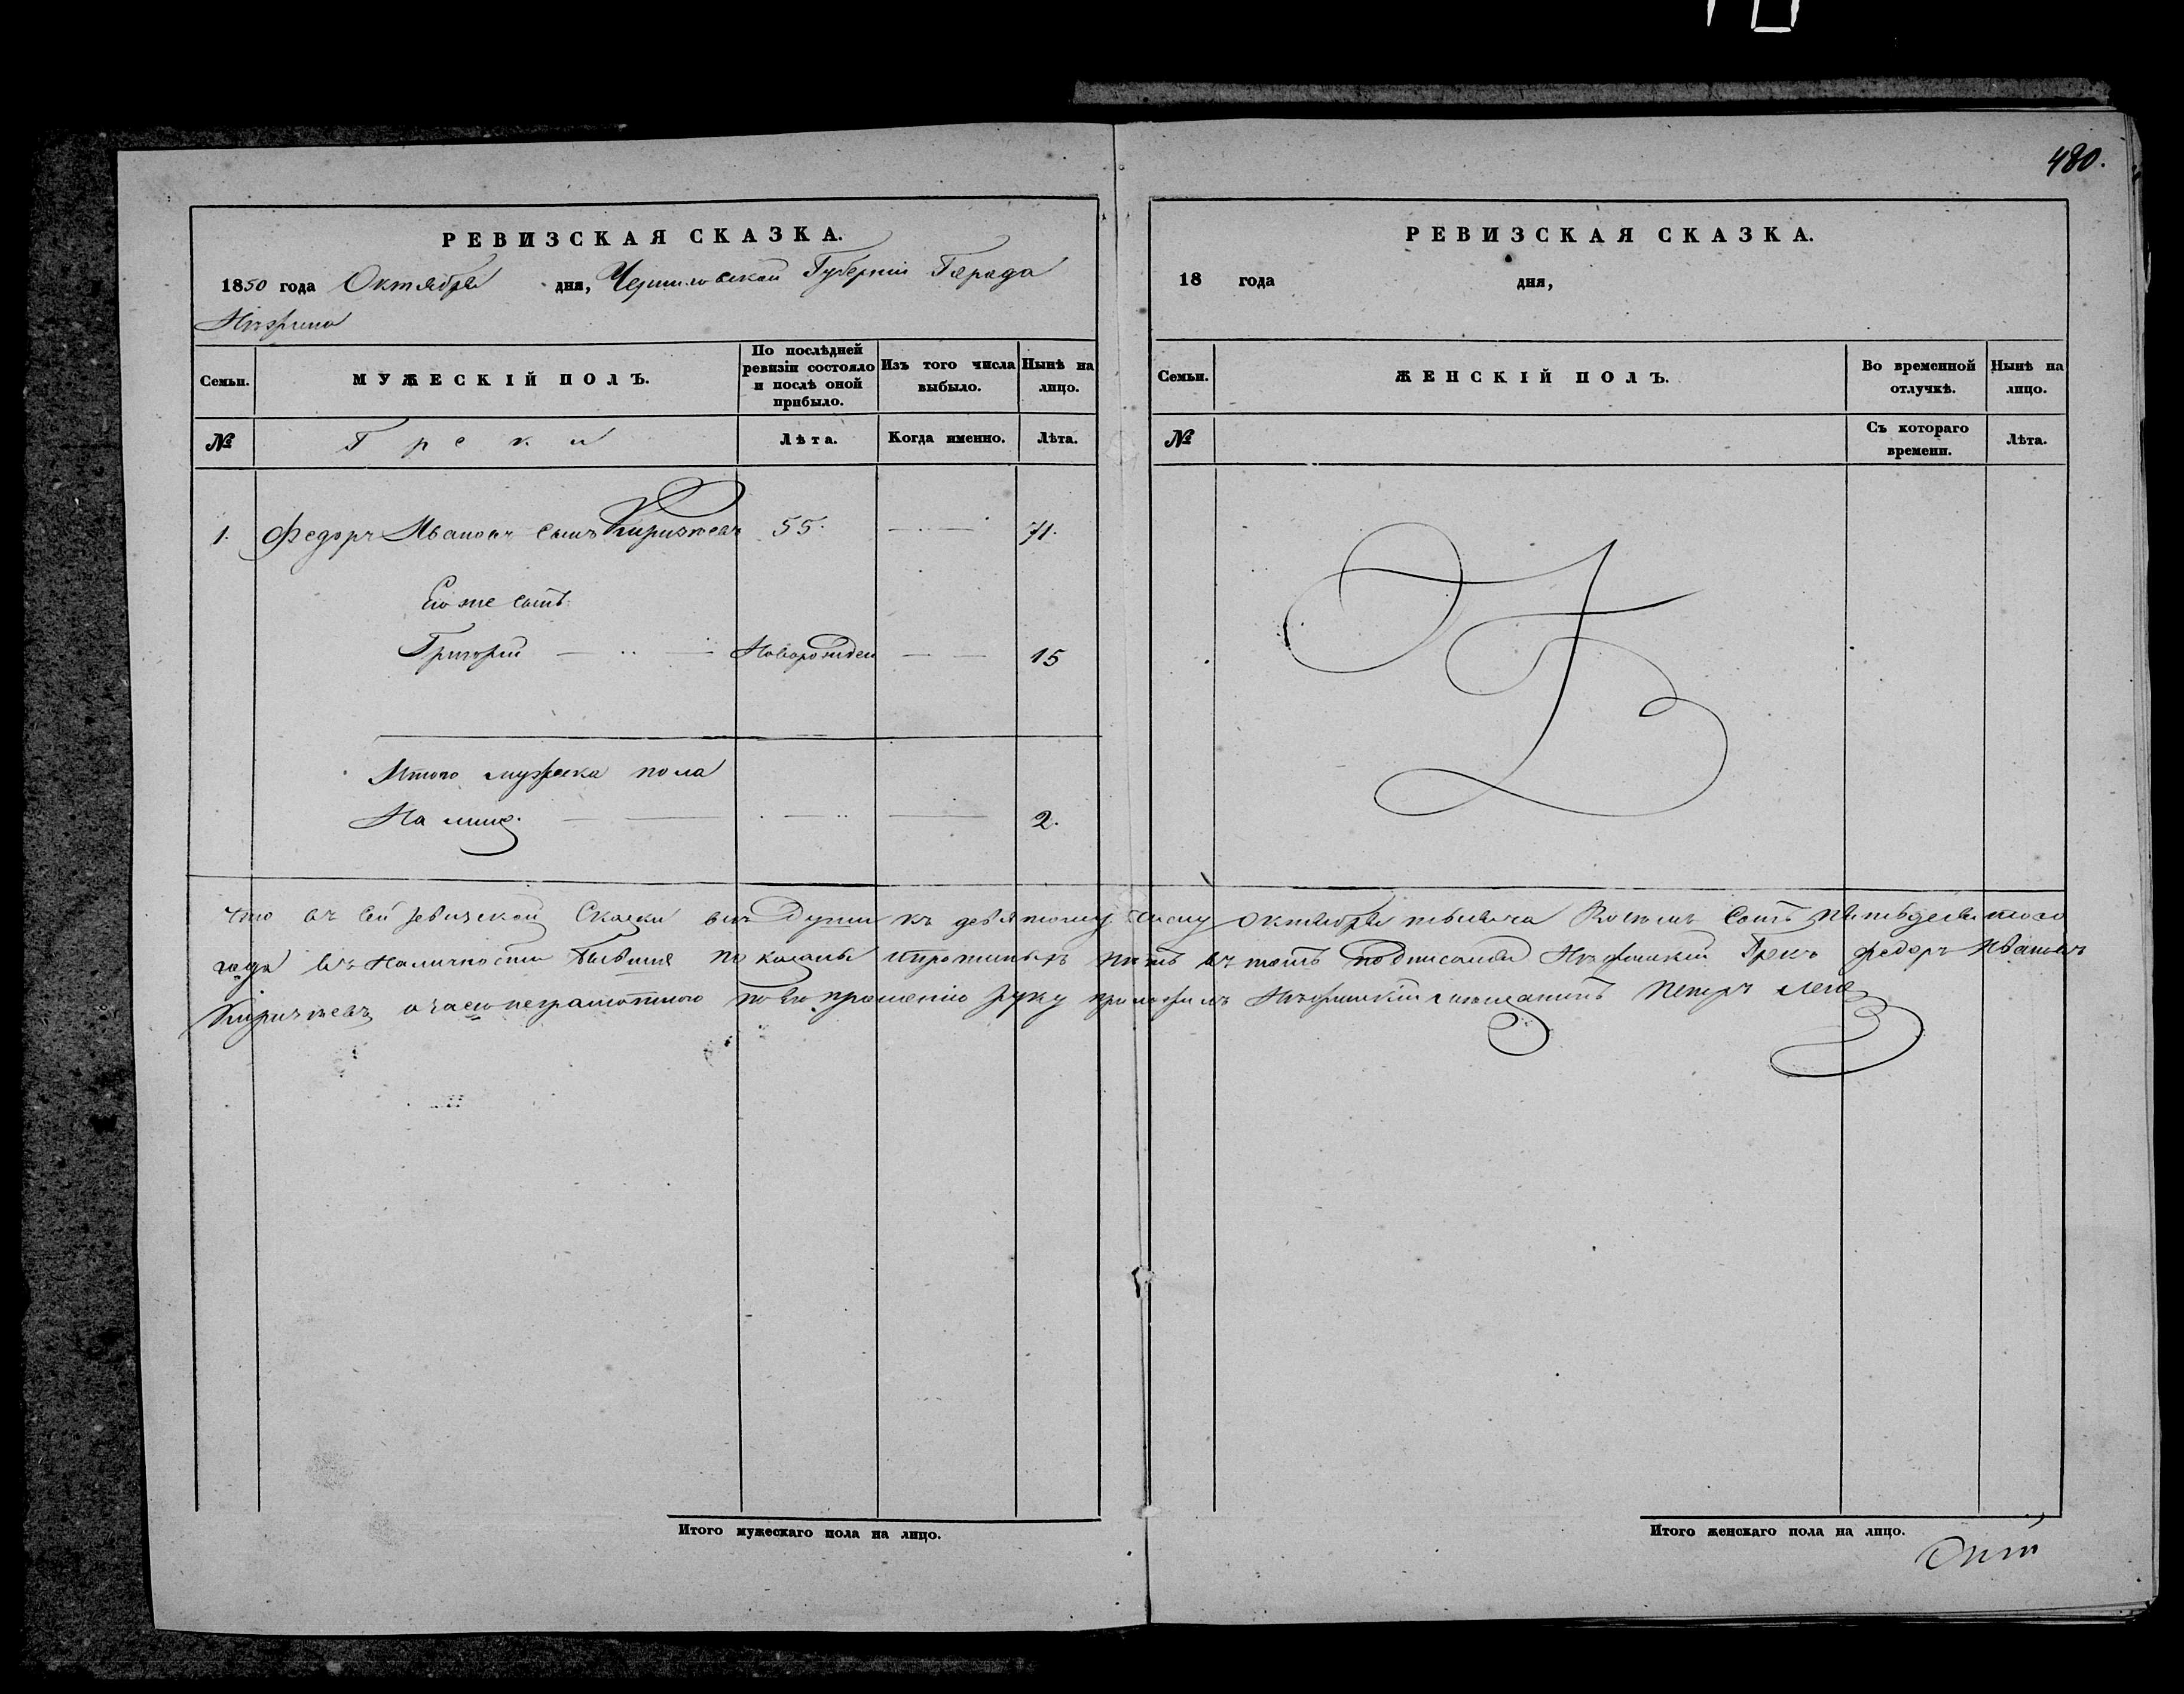 480.
РЕВИЗСКАЯ СКАЗКА.
1850 года Октября дня, Черниговской Губерніи Города
Нѣжина
Семьи.
МУЖЕСКІЙ ПОЛЪ.
По послѣдней ревизіи состояло и послѣ оной прибыло.
Изъ того числа выбыло.
Нынѣ на лицо.
№
Греки
Лѣта.
Когда именно.
Лѣта.
1. Федоръ Ивановъ Сынъ 55. 71.
Его же сынъ
Григорій Новорожден 15
Итого мужеска пола
На лицо. 2.
РЕВИЗСКАЯ СКАЗКА.
18 года дня,
Семьи.
ЖЕНСКІЙ ПОЛЪ.
Во временной отлучкѣ.
Нынѣ на лицо.
№
Съ котораго времени.
Лѣта.
Что въ сей ревизской Сказки всѣ Души къ девятому числу октября тысяча Восемь Сотъ пятьдесятого
года въ наличности Бывшие показаны и нѣтъ въ томъ подписался Нѣжинский Грекъ федоръ Ивановъ
а за его неграмотного по его прошению руку приложилъ Нѣжинский мещанинъ Петръ
Итого мужескаго пола на лицо.
Итого женскаго пола на лицо.